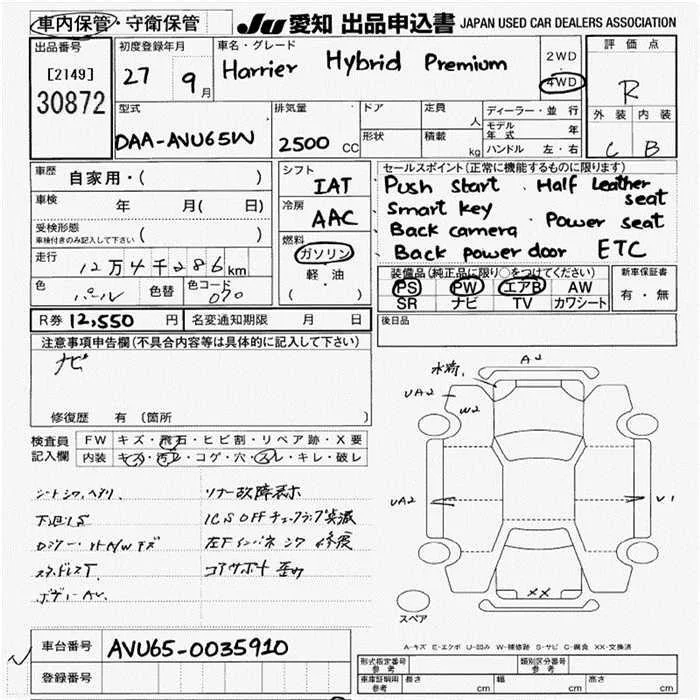 車内保管・守衛保管
JU 愛知 出品申込書 JAPAN USED CAR DEALERS ASSOCIATION
出品番号
[2149]
30872
初度登録年月
27 9月
車名・グレード
Harrier Hybrid Premium
2WD
・
4WD
評価点
R
外装 内装
C B
型式
DAA-AVU65W
排気量
2500 cc
ドア
形状
定員 人
積載 kg
ディーラー・並行
モデル年式 年
ハンドル 左・右
車歴 自家用・( )
車検 年 月( 日)
受検形態
車検付きのみ記入して下さい ( )
走行 12万4千286km
色 パール 色替 色コード 070
シフト
IAT
冷房
AAC
燃料
ガソリン
・
軽・油
( )
セールスポイント(正常に機能するものに限ります)
Push start Half Leather seat
Smart key
Back camera Power seat
Back power door ETC
装備品(純正品に限り○をつけてください)
PS PW エアB AW
SR ナビ TV カワシート
新車保証書
有・無
R券 12,550 円 名変通知期限 月 日
後日品
注意事項申告欄(不具合内容等は具体的に記入して下さい)
ナビ
修復歴 有 〔箇所 〕
検査員記入欄
FW キズ・飛石・ヒビ割・リペア跡・X要
内装 キズ・汚レ・コゲ・穴・スレ・キレ・破レ
シートシワ、ヘタリ、
下廻りS
ソナー故障表示
A2
UA2
W2
UA2
U1
XX
スペア
A-キズ E-エクボ U-凹み W-補修跡 S-サビ C-腐食 XX-交換済
車台番号 AVU65-0035910
登録番号
形式指定番号 参考
類別区分番号 参考
車庫証明用 参考 長さ cm 幅 cm 高さ cm